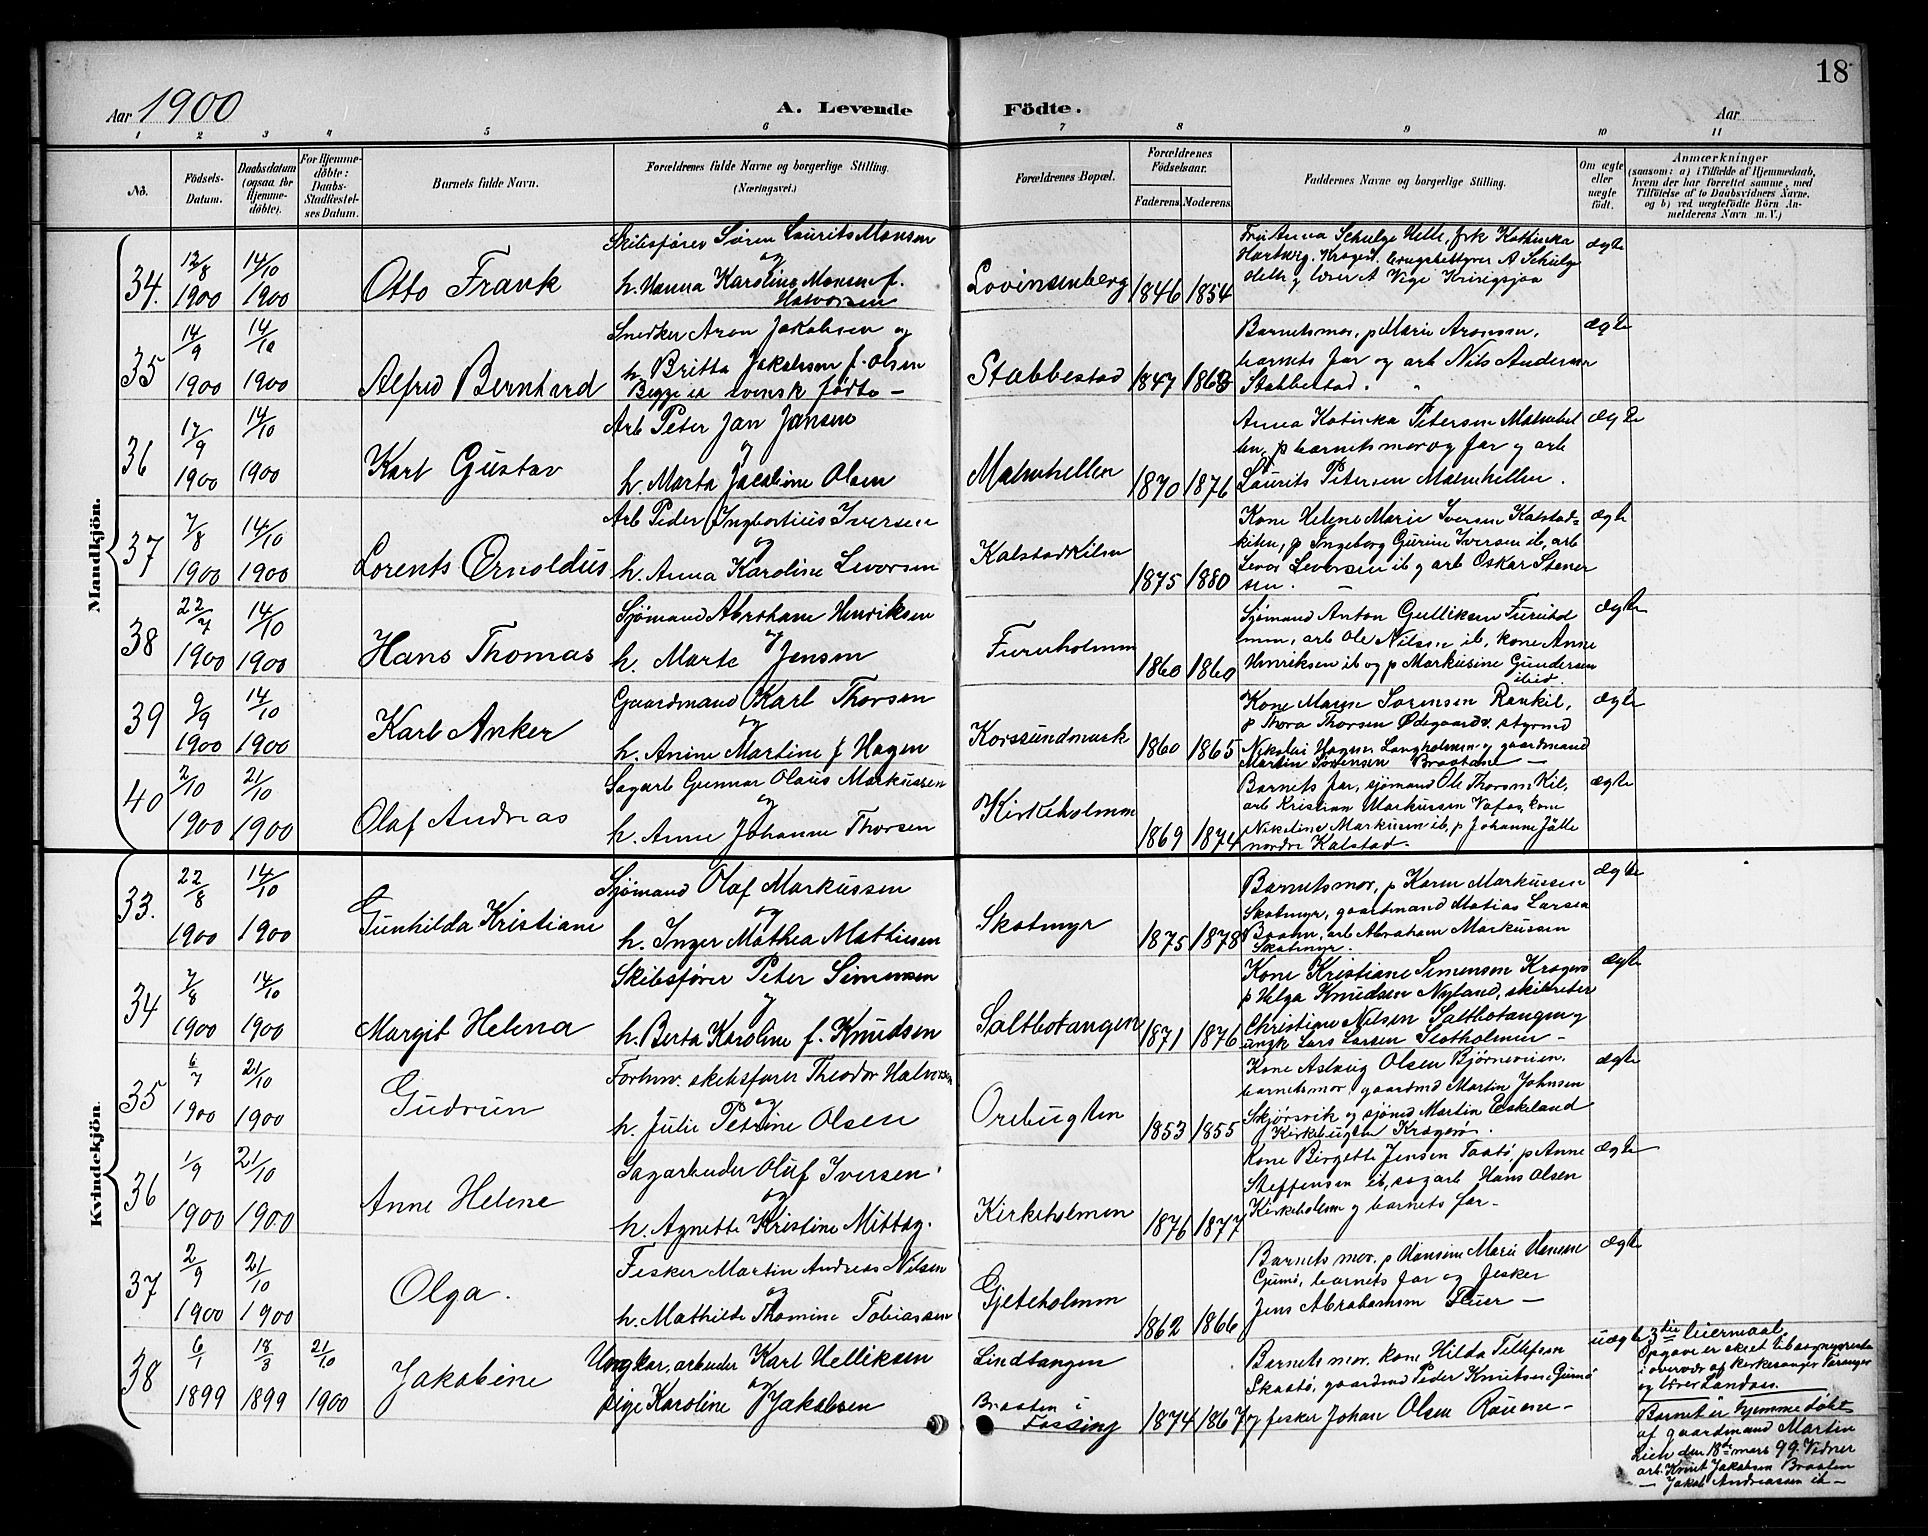 18
Aar 1900
A. Levende Födte.
Aar
1 2 3 4 5 6 7 8 9 10 11
No.
Födsels-Datum.
Daabsdatum (ogsaa for Hjemme-döbte).
For Hjemme-döbte: Daabs-Stadfestel-ses Datum.
Barnets fulde Navn.
Forældrenes fulde Navne og borgerlige Stilling. (Næringsvei.)
Forældrenes Bopæl.
Forældrenes Födselsaar.
Faderens. Moderens.
Faddernes Navne og borgerlige Stilling.
Om ægte eller uægte født.
Anmærkninger
(saasom: a) i Tilfælde af Hjemmedaab,
hvem der har forrettet samme, med
Tilföielse af to Daabsvidners Navne.
og b) ved uægtefödte Börn An-
melderens Navn m. V.)
Mandkjön.
34. 12/8 1900 14/10 1900
Otto Frank
Skibsfører Søren Laurits Monsen
og
h. Hanna Karoline Monsen f.
Halvorsen
Lovinsenberg 1846 1854
Fru Anna Schulze Helle, frk Kathinka
ægte
35 14/9 1900 14/10 1900
Alfred Bernhard
Snedker Aron Jakobsen og
h. Britta Jakobsen f. Olsen
Begge er svensk fødte –
Stabbestad 1847 1863
Barnets mor, p Marie Aronsen,
barnets far og arb Nils Andersen
Stabbestad.
ægte
36 17/9 1900 14/10 1900
Karl Gustav
Arb Peter Jan Jansen
og
h. Marta Jacobine Olsen
Malmhellen 1870 1876
Anna Katinka Petersen Malmhel
len, p barnets mor og far og arb
Laurits Petersen Malmhellen.
ægte
37 7/8 1900 14/10 1900
Lorents Ornoldus
Arb Peder Ingbortius Iversen
og
h. Anna Karoline Levorsen
Kalstadkilen 1875 1880
Kone Helene Marie Iversen Kalstad-
kilen, p Ingeborg Gurine Iversen ib, arb
Levor Levorsen ib og arb Oskar Stener
sen. –
ægte
38 22/7 1900 14/10 1900
Hans Thomas
Sjømand Abraham Henriksen
og
h. Marte Jensen
Furuholmen 1860 1860
Sjømand Anton Gulliksen Furuhol
men, arb Ole Nilssen ib, kone Anne
Henriksen ib og p Markusine Gundersen
ibid.
ægte
39 9/9 1900 14/10 1900
Karl Anker
Gaardmand Karl Thorsen
og
h. Anine Martine f Hagen
Korssundmark 1860 1865
Kone Maren Sørensen Rankil,
p Thora Thorsen Ødegaards. styrmd
Nikolai Hagen Langholmen og gaardmand
Martin Sørensen Braatane –
ægte
40 2/10 1900 21/10 1900
Olaf Andreas
Sagarb Gunnar Olaus Markussen
og
h. Anne Johanne Thorsen
Kirkeholmen 1869 1874
Barnets far, sjømand Ole Thorsen Kil,
arb Kristian Markussen Vafos, kone
Nikeline Markussen ib, p Johanne Jølle
nordre Kalstad.
ægte
Kvindekjön.
33. 22/8 1900 14/10 1900
Gunhilda Kristiane
Sjømand Olaf Markussen
og
h. Inger Mathea Mathiesen
Skotmyr 1875 1878
Barnets mor, p Karen Markussen
Skotmyr, gaardmand Matias Larsen
Braaten, arb Abraham Markussen
Skotmyr.
ægte
34 7/8 1900 14/10 1900
Margit Helena
Skibsfører Peter Simonsen
og
h. Berta Karoline f. Knudsen
Saltbotangen 1871 1876
Kone Kristiane Simonsen Kragerø
p Helga Knudsen Nyland, skibsreder
Christian Nilsen Saltbotangen og
ungk Lars Larsen Slotholmen –
ægte
35 6/7 1900 21/10 1900
Gudrun
Forhv. skibsfører Theodor Halvorsen
og
h. Julie Petrine Olsen
Orebugten 1853 1855
Kone Aslaug Olsen Bjørneveien,
barnets mor, gaardmd Martin Johnsen
Skjørsvik og sjømd Martin Eskeland
Kirkebugten Kragerø.
ægte
36 1/9 1900 21/10 1900
Anne Helene
Sagarbeider Oluf Iversen
og
h. Agnette Kristine Mittag.
Kirkeholmen 1876 1877
Kone Birgette Jensen Taatø, p Anne
Steffensen ib, sagarb Hans Olsen
Kirkeholmen og barnets far –
ægte
37 2/9 1900 21/10 1900
Olga.
Fisker Martin Andreas Nilsen
og
h. Mathilde Thomine Tobiassen
Gjeteholmen 1862 1866
Barnets mor. p Hansine Marie Hansen
Gumø, barnets far og fisker
Jens Abrahamsen Fluer –
ægte
38 6/1 1899 18/3 1899 21/10 1900
Jakobine
Ungkar, arbeider Karl Helliksen
og
pige Karoline Jakobsen
Lindtangen
Braaten i
Fossing 1874 1867
Barnets mor. kone Hilda Tellefsen
Skaatø, gaardmd Peder Knutsen Gumø
og fisker Johan Olsen Rauen –
uægte
3die leiermaal.
Opgave er skeet til sogneprесten
i overvær af kirkesanger Foranger
og lærer Landaas.
Barnet er hjemmedøbt
af gaardmand Martin
Lien den 18de mars 99. Vidner
arb. Knut Jakobsen Braaten
– Jakob Andreassen ib –